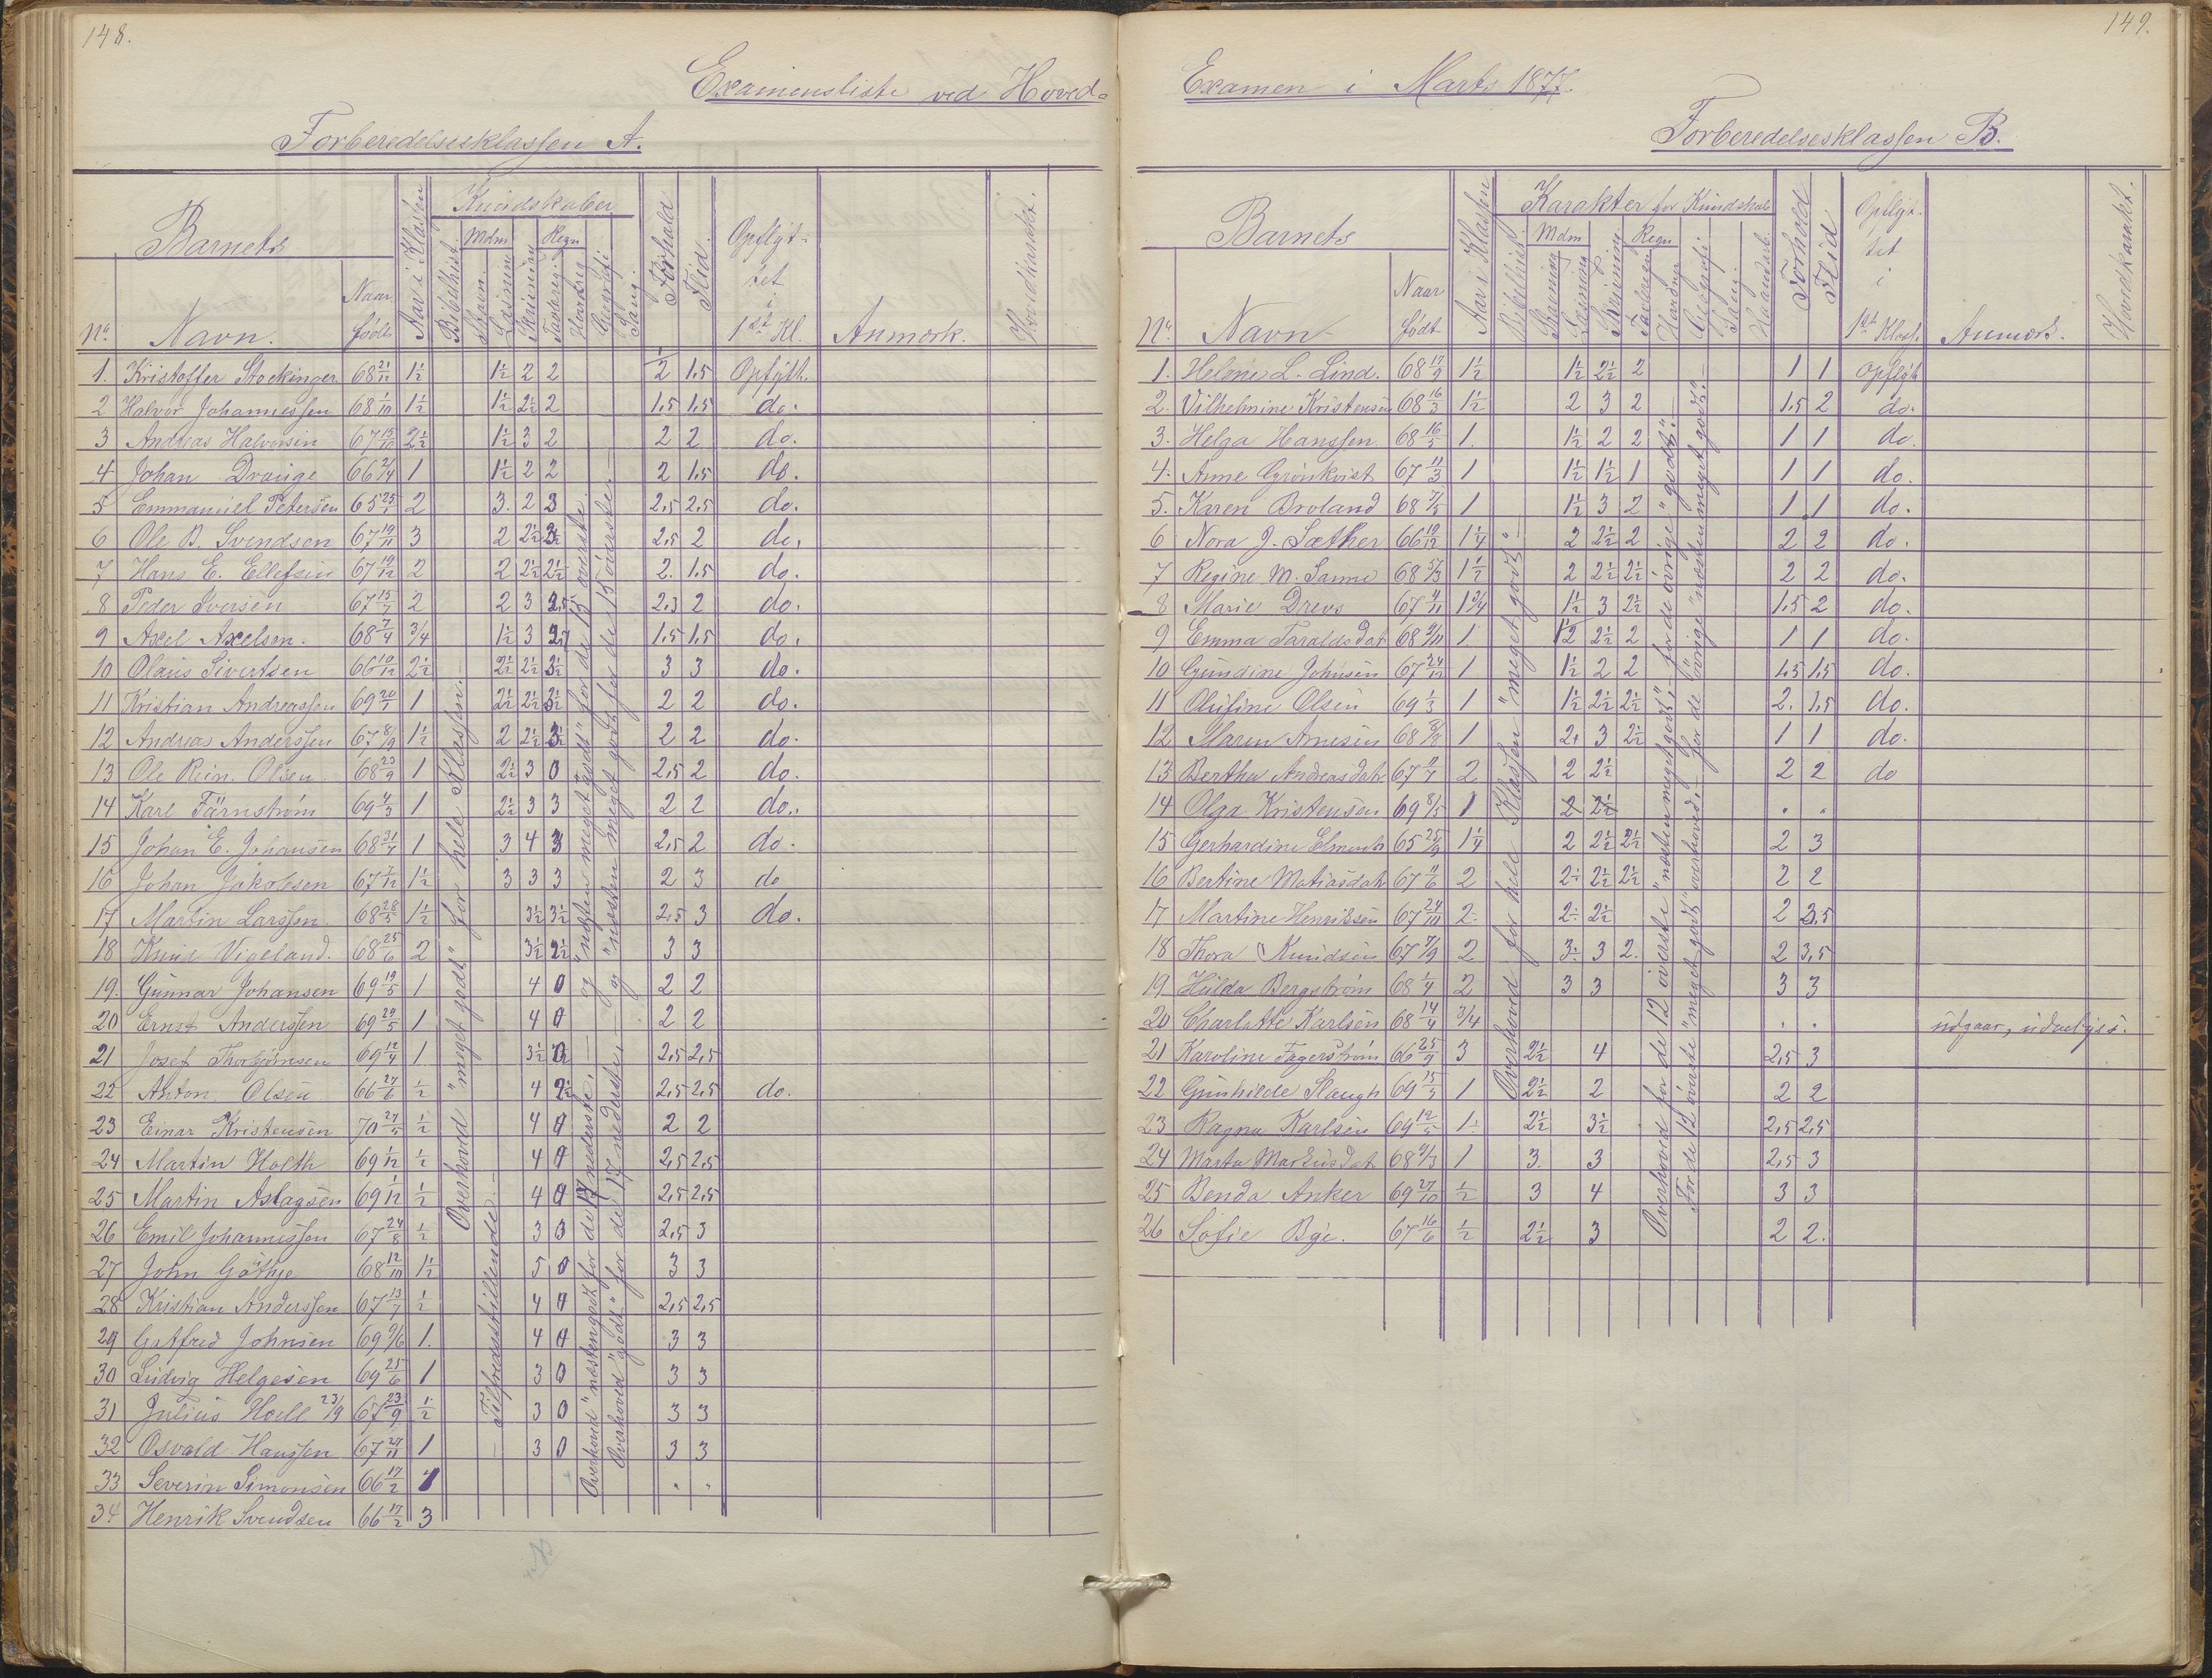 148.
Examensliste ved Hoved-
Forberedelsesklassen A.
Barnets
Aar i Klassen
Kundskaber
Forhold
Flid.
Opflyt-
tet
i
1ste Kl.
Anmærk.
Hovedkarakt.
No
Navn.
Naar
født
Bibelhist.
Mdm
Skriving
Regn
Geografi
Sang
1. Kristoffer Stockinger 68 21/11 1½ 1½ 2 2 2 1,5 Opflytt.
2 Halvor Johannessen 68 1/10 1½ 1½ 2½ 2 1,5 1,5 do.
3 Andreas Halvorsen 67 15/10 2½ 1½ 3 2 2 2 do.
4 Johan Drange 66 21/4 1 1½ 2 2 2 1,5 do.
5 Emmanuel Petersen 65 25/1 2 3. 2 3 2,5 2,5 do.
6 Ole B. Svendsen 67 19/11 3 2 2½ 2,5 2 do.
7 Hans E. Ellefsen 67 19/12 2 2 2½ 2½ 2. 1,5 do.
8 Peder Iversen 67 15/7 2 2 3 2,5 2,3 2 do.
9 Axel Axelsen. 68 7/4 3/4 1½ 3 1,5 1,5 do.
10 Olaus Sivertsen 66 10/12 2½ 2½ 2½ 3 3 do.
11 Kristian Andreassen 69 20/1 1 2½ 2½ 2 2 do.
12 Andreas Anderssen 67 8/9 1½ 2 2½ 2 2 do.
13 Ole Rein. Olsen 68 23/9 1 2½ 3 0 2,5 2 do.
14 Karl Färnström 69 4/3 1 2½ 3 3 2 2 do.
15 Johan E. Johansen 68 31/7 1 3 4 3 2,5 2 do.
16 Johan Jakobsen 67 7/12 1½ 3 3 3 2 3 do
17 Martin Larssen 68 28/5 1½ 3½ 3½ 2,5 3 do.
18 Knud Vigeland. 68 25/6 2 3½ 3 3
19. Gunnar Johansen 69 19/5 1 4 0 2 2
20 Ernst Anderssen 69 29/5 1 4 0 2 2
21 Josef Thorbjörnsen 69 12/4 1 3½ 0 2,5 2,5
22 Anton Olsen 66 27/6 ½ 4 2½ 2,5 2,5 do.
23 Einar Kristensen 70 27/5 ½ 4 0 2 2
24 Martin Holth 69 1/12 ½ 4 0 2,5 2,5
25 Martin Aslagsen 69 1/12 ½ 4 0 2,5 2,5
26 Emil Johannessen 67 24/8 ½ 3 0 2,5 3
27 John Göthje 68 12/10 1½ 5 0 3 3
28 Kristian Anderssen 67 13/7 ½ 4 0 2,5 2,5
29 Gotfred Johnsen 69 9/6 1. 4 0 3 3
30 Ludvig Helgesen 69 25/6 1 3 0 3 3
31 Julius Hoell 23/9 67 23/9 ½ 3 0 3 3
32 Osvald Hanssen 67 27/11 1 3 0 3 3
33 Severin Simonsen 66 17/2
34 Henrik Svendsen 66 17/2 3
Overhoved "meget godt" for hele Klassen.
Tilfredsstillende.
Overhoved "næstengodt for de 17 nederste, og "næsten meget godt" for de 15 øverste.
Overhoved "godt" for de 17 nederste, og "næsten meget godt for de 15 øverste.
149.
Examen i Marts 1877.
Forberedelsesklassen B.
Barnets
Aar i Klassen
Karakter for Kundskab
Forhold
Flid
Opflyt-
tet
i
1ste Klasse.
Anmærk.
Hovedkarakt.
No
Navn
Naar
født
Bibelhist.
Mdm
Regn
Geografi
Sang
Haandarb.
1. Helene L. Lind. 68 17/9 1½ 1½ 2½ 2 1 1 Opflyt
2. Vilhelmine Kristensen 68 16/3 1½ 2 3 2 1,5 2 do.
3. Helga Hanssen 68 16/5 1. 1½ 2 2 1 1 do.
4. Anne Grönkvist 67 11/3 1 1½ 1½ 1 1 1 do.
5. Karen Broland 68 7/5 1 1½ 3 2 1 1 do.
6 Nora J. Sæther 66 19/12 1¼ 2 2½ 2 2 2 do.
7 Regine M. Sanne 68 5/3 1½ 2 2½ 2½ 2 2 do.
8 Marie Drevs 67 4/11 1¾ 1½ 3 2½ 1,5 2 do.
9 Emma Taraldsdat 68 9/11 1. 2½ 2 1 1 do.
10 Gundine Johnsen 67 24/12 1 1½ 2 2 1,5 1,5 do.
11 Olufine Olsen 69 1/3 1 1½ 2½ 2½ 2. 1,5 do.
12 Maren Arnesen 68 1 2+ 3 2½ 1 1 do.
13 Bertha Andreasdat 67 11/7 2 2 2½ 2 2 do
14 Olga Kristensen 69 8/5 1 2 2½
15 Gerhardine Elmseth 65 25/9 1¼ 2 2½ 2½ 2 3
16 Bertine Matiasdat 67 11/6 2 2÷ 2½ 2½ 2 2
17 Martine Henriksen 67 24/10 2. 2÷ 2½ 2 2,5
18 Thora Knudsen 67 7/9 2 3÷ 3 2. 2 3,5
19 Hulda Bergström 68 1/4 2 3 3 3 3
20 Charlotte Karlsen 68 14/4 3/4 udgaar, udvælges.
21 Karoline Fagerström 66 25/9 3 2½ 4 2,5 3
22 Gunhilde Haugh 69 15/5 1 2½ 2 2 2
23 Ragna Karlsen 69 12/5 1. 2½ 3½ 2,5 2,5
24 Marta Markusdat 68 9/3 1 3. 3 2,5 3
25 Benda Anker 69 27/10 ½ 3 4 3 3
26 Sofie Bge. 67 16/6 ½ 2½ 3 2 2.
Overhoved for hele Klassen "meget godt"
Overhoved for de 12 øverste "næsten meget godt", for de øvrige "godt".
For de 12 øverste "meget godt" overhoved. for de øvrige "næsten meget godt".